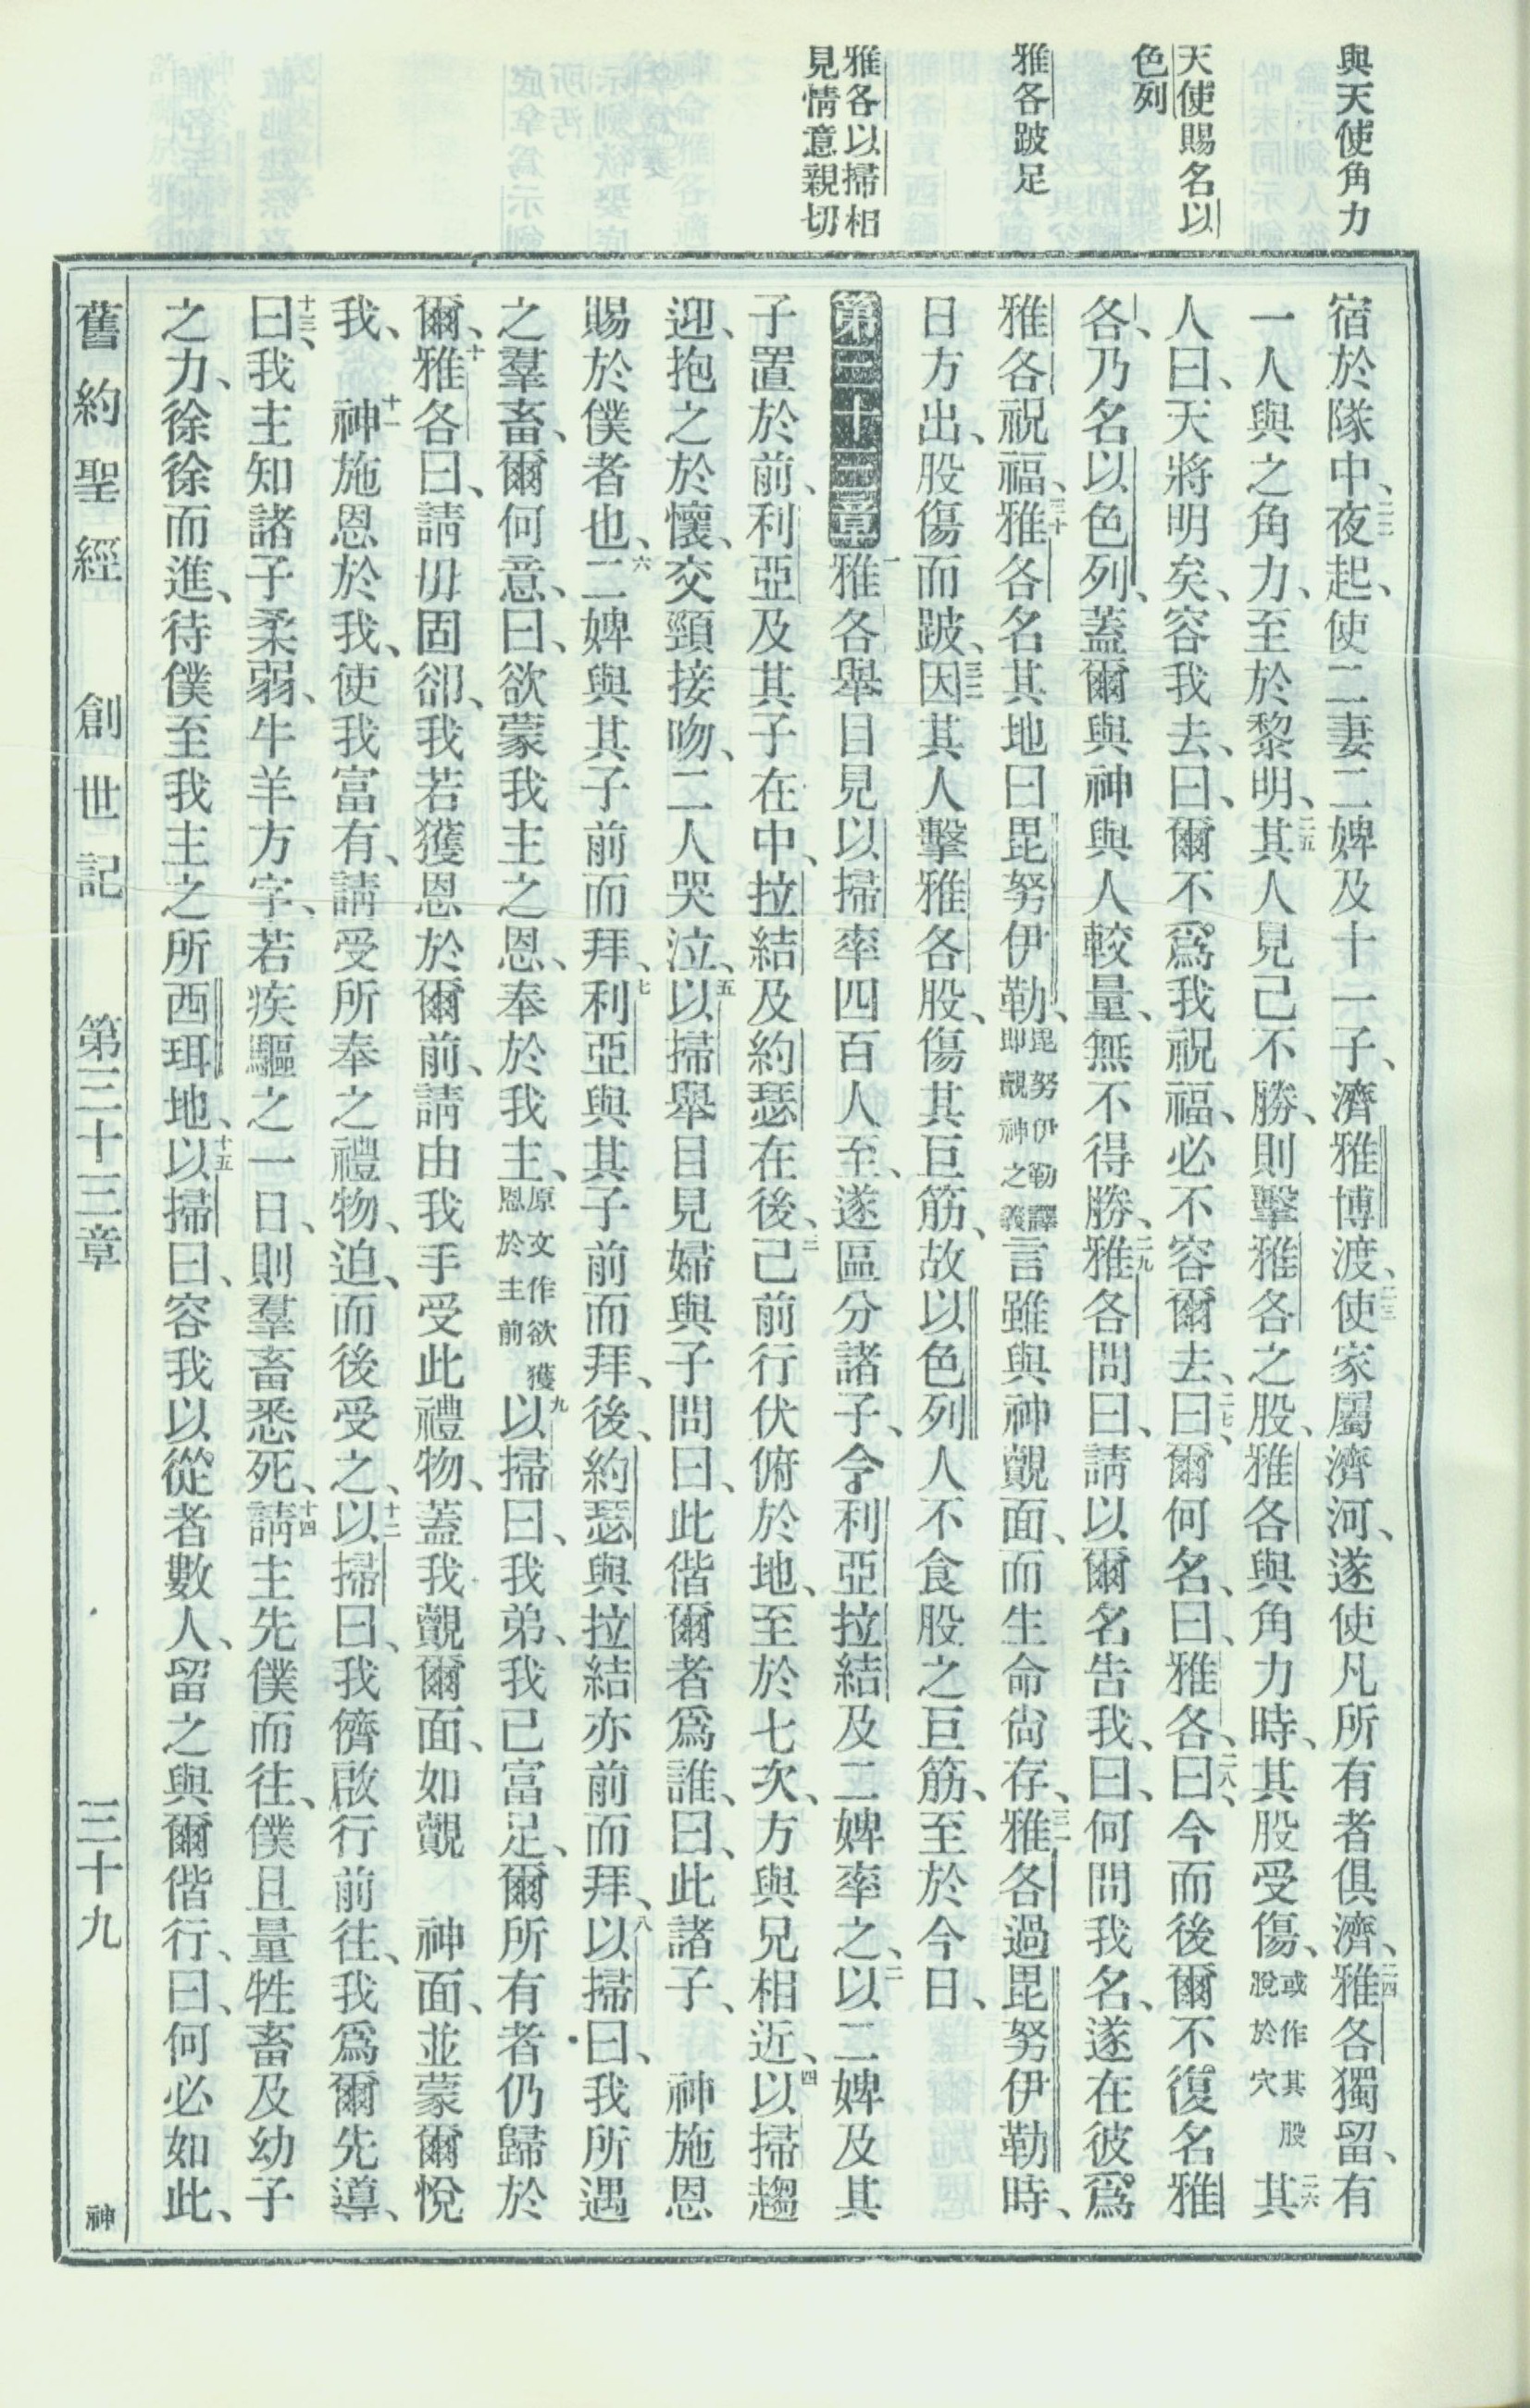 與天使角力
天使賜名以
色列
雅各跛足
雅各以掃相
見情意親切
宿於隊中、二二夜起、使二妻二婢及十一子、濟雅博渡、二三使家屬濟河、遂使凡所有者俱濟、二四雅各獨留、有
一人與之角力、至於黎明、二五其人見己不勝、則擊雅各之股、雅各與角力時、其股受傷、或作其股脫於穴二六其
人曰、天將明矣、容我去、曰、爾不爲我祝福、必不容爾去、二七曰、爾何名、曰、雅各、二八曰、今而後爾不復名雅
各、乃名以色列、蓋爾與神與人較量、無不得勝、二九雅各問曰、請以爾名告我、曰、何問我名、遂在彼爲
雅各祝福、三十雅各名其地曰毘努伊勒、毘努伊勒譯即覿神之義言雖與神覿面、而生命尙存、三一雅各過毘努伊勒時、
日方出、股傷而跛、三二因其人擊雅各股、傷其巨筋、故以色列人不食股之巨筋、至於今日、
第三十三章一雅各舉目見以掃率四百人至、遂區分諸子、令利亞拉結及二婢率之、二以二婢及其
子置於前、利亞及其子在中、拉結及約瑟在後、三己前行伏俯於地、至於七次、方與兄相近、四以掃趨
迎、抱之於懷、交頸接吻、二人哭泣、五以掃舉目見婦與子問曰、此偕爾者爲誰、曰、此諸子、　神施恩
賜於僕者也、六二婢與其子前而拜、七利亞與其子前而拜、後、約瑟與拉結亦前而拜、八以掃曰、我所遇
之羣畜、爾何意、曰、欲蒙我主之恩、奉於我主、原文作欲獲恩於主前九以掃曰、我弟、我已富足、爾所有者仍歸於
爾、十雅各曰、請毋固卻、我若獲恩於爾前、請由我手受此禮物、蓋我覿爾面、如覿　神面、並蒙爾悅
我、十一　神施恩於我、使我富有、請受所奉之禮物、迫、而後受之、十二以掃曰、我儕啟行前往、我爲爾先導、
十三曰、我主知諸子柔弱、牛羊方字、若疾驅之一日、則羣畜悉死、十四請主先僕而往、僕且量牲畜及幼子
之力、徐徐而進、待僕至我主之所西珥地、十五以掃曰、容我以從者數人、留之與爾偕行、曰、何必如此、
舊約聖經　創世記　第三十三章　三十九　神